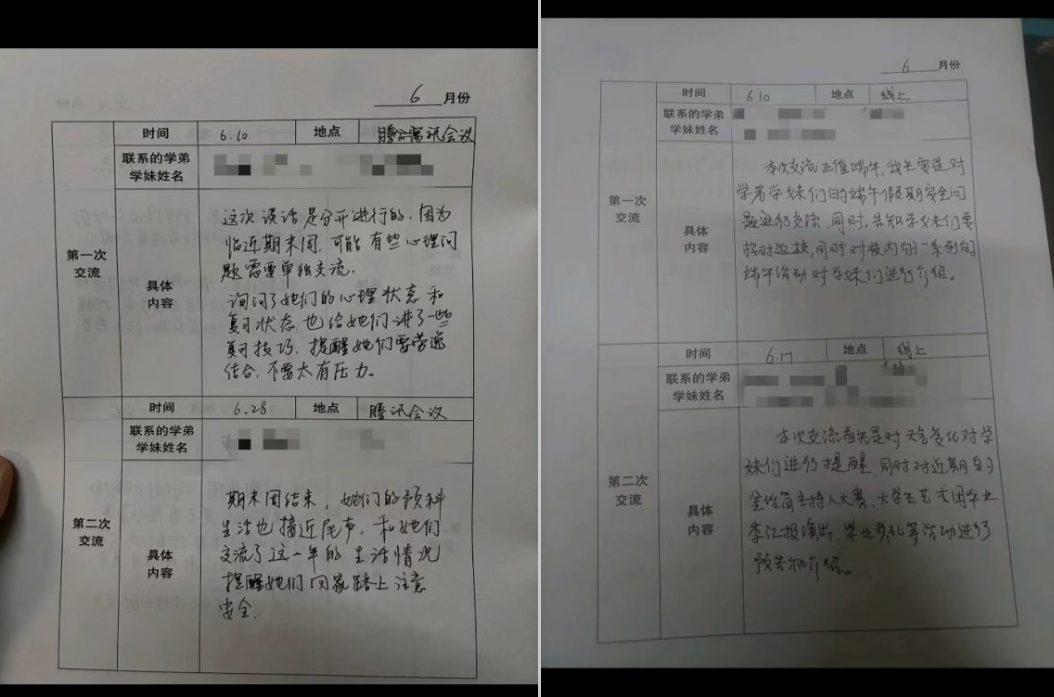 6 月份
时间 6.10 地点 腾讯会议
联系的学弟
学妹姓名
第一次
交流
具体
内容
这次谈话是分开进行的，因为
临近期末周，可能有些心理问
题需要单独交流。
询问了她们的心理状态和
复习状态，也给她们讲了一些
复习技巧，提醒她们要劳逸
结合，不要太有压力。
时间 6.28 地点 腾讯会议
联系的学弟
学妹姓名
第二次
交流
具体
内容
期末周结束，她们的预科
生活也接近尾声，和她们
交流了这一年的生活情况
提醒她们回家路上注意
安全.
6 月份
时间 6.10 地点 线上
联系的学弟
学妹姓名
第一次
交流
具体
内容
本次交流正值端午，我主要是对
学弟学妹们的端午假期安全问
题进行交流，同时，告知学妹们要
按时返校，同时对校内的一系列的
端午活动对学妹们进行介绍。
时间 6.17 地点 线上
联系的学弟
学妹姓名
第二次
交流
具体
内容
本次交流首先是对天气变化对学
妹们进行提醒，同时对近期的
主持人大赛，大学生艺术团毕业
季汇报演出，等活动进行
预告和介绍。